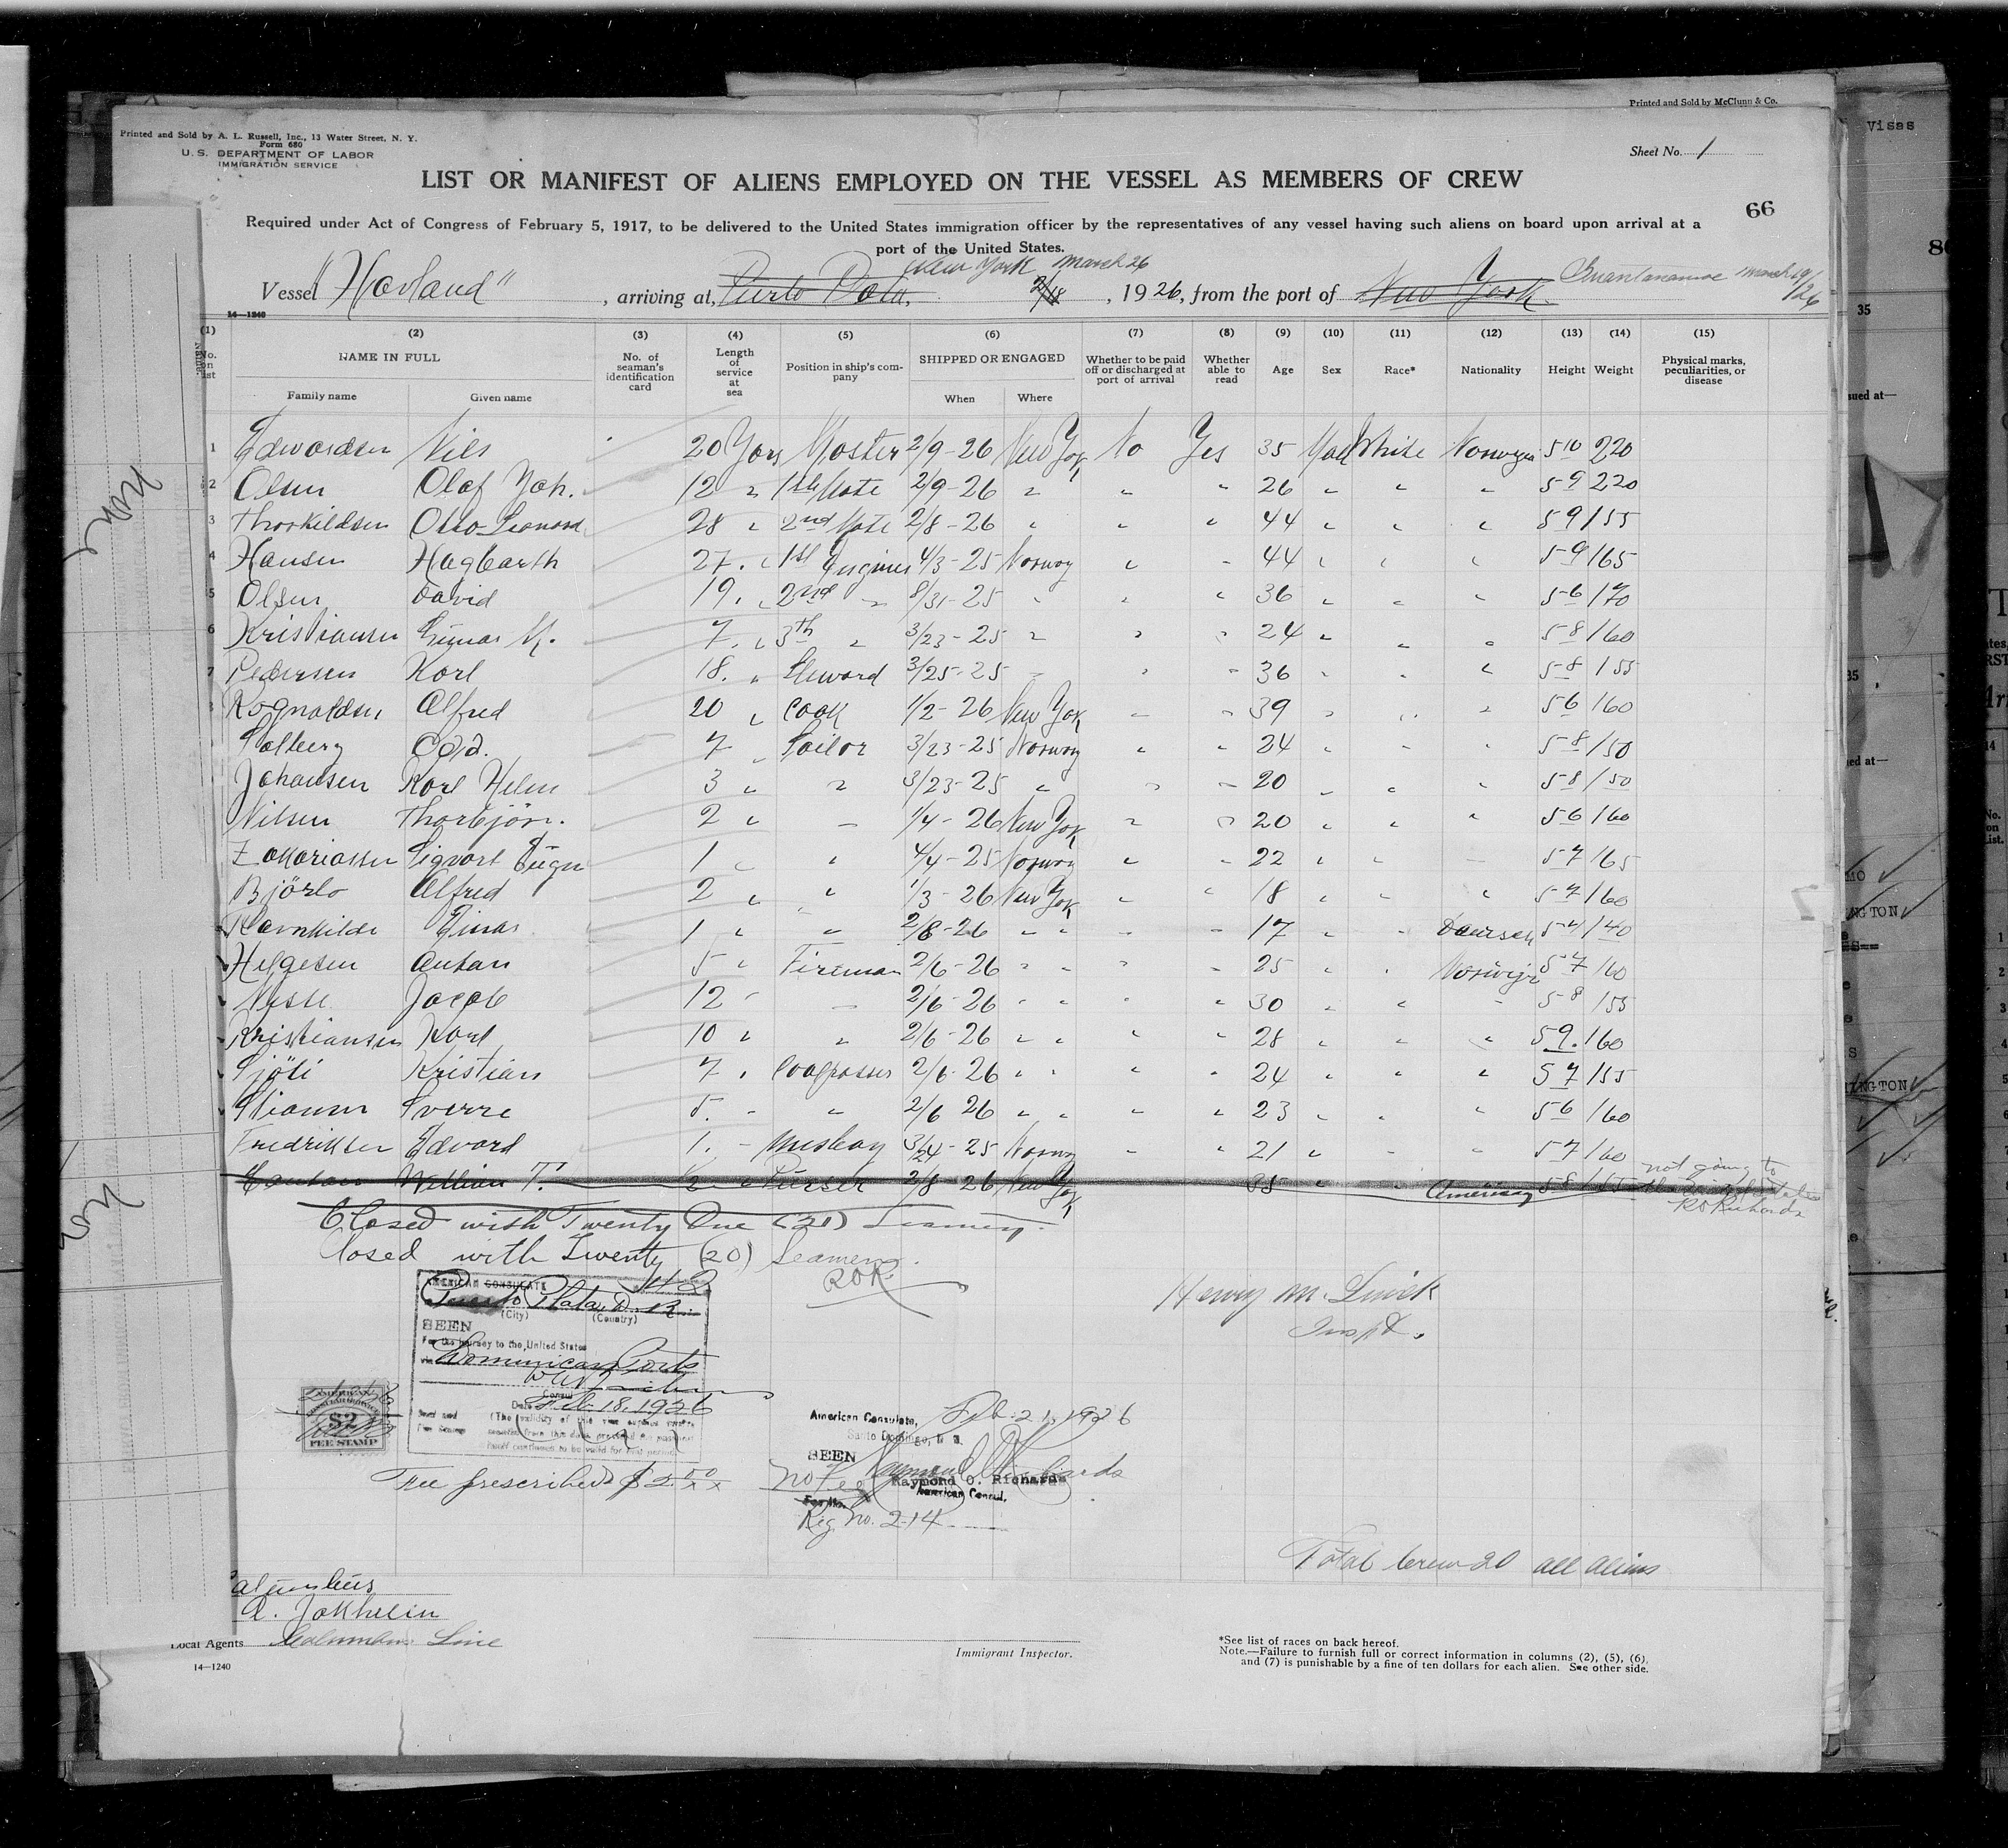 Printed and Sold by McClunn & Co.
Visas
Printed and Sold by A. L. Russell, Inc., 13 Water Street, N. Y.
Form 680
U. S. DEPARTMENT OF LABOR
IMMIGRATION SERVICE
Sheet No. 1
LIST OR MANIFEST OF ALIENS EMPLOYED ON THE VESSEL AS MEMBERS OF CREW
66
Required under Act of Congress of February 5, 1917, to be delivered to the United States immigration officer by the representatives of any vessel having such aliens on board upon arrival at a
port of the United States.
New York March 26
Vessel "Hovland", arriving at, 2/18, 1926, from the port of New York Guantanamo March 19/26
14—1240
(1) (2) (3) (4) (5) (6) (7) (8) (9) (10) (11) (12) (13) (14) (15)
No. on list NAME IN FULL No. of seaman's identification card Length of service at sea Position in ship's company SHIPPED OR ENGAGED Whether to be paid off or discharged at port of arrival Whether able to read Age Sex Race* Nationality Height Weight Physical marks, peculiarities, or disease
Family name Given name When Where
1 Edwardsen Nils 20 Years Master 2/9-26 New York No Yes 35 Male White Norwegian 5 10 220
2 Olsen Olaf Joh. 12 " 1st Mate 2/9-26 " " " 26 " " " 5 9 220
3 Thorkildsen Otto Leonard 28 " 2nd Mate 2/8-26 " " " 44 " " " 5 9 155
4 Hansen Hagbarth 27 " 1st Engineer 4/3-25 Norway " " 44 " " " 5-9 165
5 Olsen David 19 " 2nd " 8/31-25 " " " 36 " " " 5-6 170
6 Kristiansen Einar M. 7 " 3th " 3/23-25 " " " 24 " " " 5-8 160
7 Pedersen Karl 18 " Steward 3/25-25 " " " 36 " " " 5-8 155
8 Rognaldsen Alfred 20 " Cook 1/2-26 New York " " 39 " " " 5 6 160
Solberg 7 " Sailor 3/23-25 Norway " " 24 " " " 5-8 150
Johansen Karl Helm 3 " " 3/23-25 " " " 20 " " " 5-8 150
Nilsen Thorbjörn. 2 " - 1/4-26 New York " " 20 " " " 5 6 160
Zakariassen Sigvart 1 " " 4/4-25 Norway " " 22 " " " 5-7 165
Björlo Alfred 2 " " 1/3-26 New York " " 18 " " " 5-7 160
Ravnkilde Einar 1 " " 2/8-26 " " " " 17 " " 5-4 140
Helgesen Anton 5 " Fireman 2/6-26 " " " " 25 " " Norwegian 5-7 160
Jacob 12 " - 2/6-26 " " " " 30 " " " 5-8 155
Kristiansen Karl 10 " " 2/6-26 " " " " 28 " " " 5 9. 160
Kristian 7 " Coalpasser 2/6-26 " " " " 24 " " " 5 7 155
Sverre 5. " " 2/6 26 " " " " 23 " " " 5 6 160
Fredriksen Edvard 1. " Messboy 3/24-25 Norway " " 21 " " " 5 7 160
William T. 2 " Purser 2/8-26 New York 35 " " American 5-8 not going to
R O Richards
Closed with Twenty One (21) Seamen.
Closed with Twenty (20) Seamen.
ROR.
Henry M.
Inspt.
AMERICAN CONSULATE
Puerto Plata, D. R.
(City) (Country)
SEEN
For the journey to the United States
via Dominican Ports
Consul
Date Feb. 18, 1926
AMERICAN
CONSULAR SERVICE
$2
FEE STAMP
Fee prescribed $2.00
American Consulate, Feb. 21, 1926
Santo Domingo, D. R.
SEEN
No Fee
Raymond O. Richards
American Consul.
Reg. No. 214
Total crew 20 all aliens
Local Agents Columbus Line
Immigrant Inspector.
14—1240
*See list of races on back hereof.
Note.—Failure to furnish full or correct information in columns (2), (5), (6),
and (7) is punishable by a fine of ten dollars for each alien. See other side.